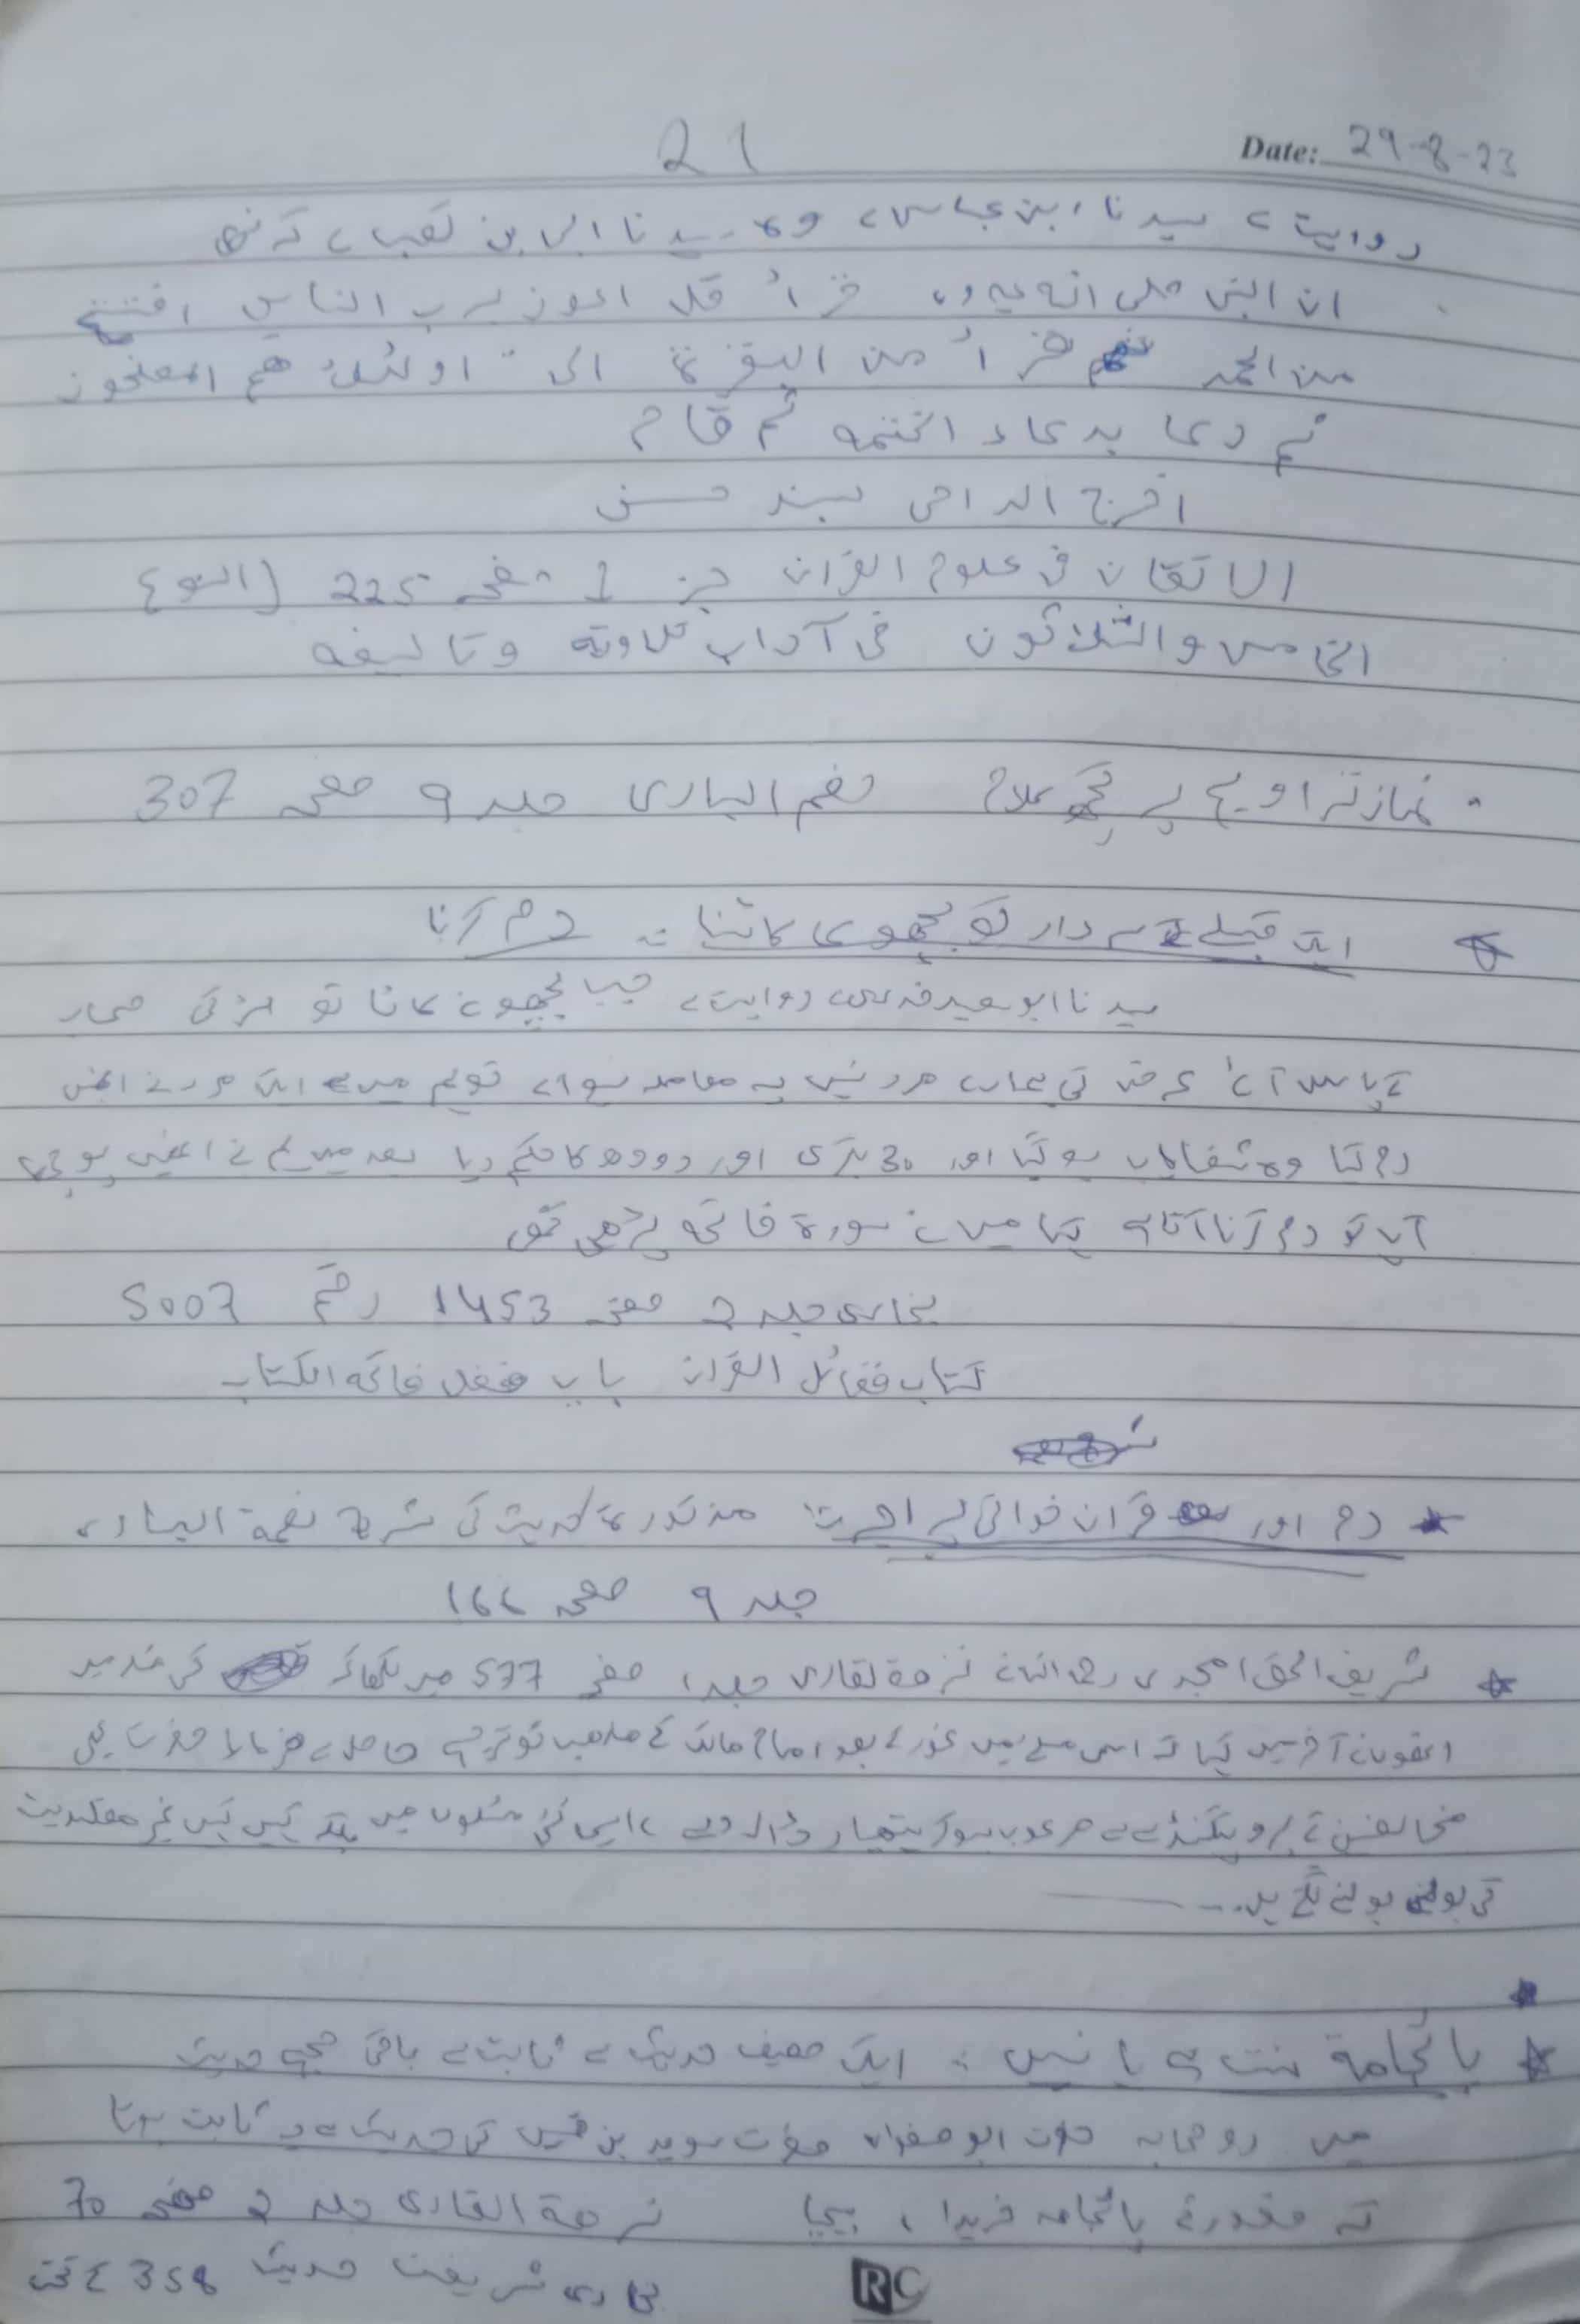 21
Date: 29-8-23
روایت ہے سیدنا ابن عباس سے وہ سیدنا ابی بن کعب سے کہ
ان النبی صلی اللہ علیہ وسلم قرأ قل اعوذ برب الناس افتتح
من الحمد ثم قرأ من البقرۃ الی " اولئک ھم المفلحون
ثم دعا بدعاء الختمہ ثم قام
اخرج الدارمی بسند حسن
الاتقان فی علوم القرآن جز 1 صفحہ 225 (النوع
الخامس والثلاثون فی آداب تلاوتہ وتالیفہ
• نماز تراویح پر کچھ کلام نعم الباری جلد ۹ صفحہ 307
ایک قبیلے کے سردار کو بچھو کا کاٹنا :- دم کرنا
سیدنا ابو سعید خدری سے روایت ہے جب بچھو نے کاٹا تو لڑکی صحابہ
کے پاس آئی عرض کی ہمارے مرد نہیں یہ معاملہ تو ہم میں سے ایک مرد نے انھیں
دم کیا وہ شفایاب ہو گیا اور 30 بکری اور دودھ کا حکم دیا بعد میں ہم نے انھیں پوچھا
آپ کو دم کرنا آتا ہے کہا میں نے سورۃ فاتحہ پڑھی تھی
بخاری جلد 2 صفحہ 1453 رقم 5007
کتاب فضائل القرآن باب فضل فاتحہ الکتاب
دم اور قرآن خوانی پر اجرت: مذکورہ حدیث کی شرح نعمۃ الباری
جلد ۹ صفحہ ۱۶۶
شریف الحق امجدی رحمہ اللہ نے نزھۃ القاری جلد 1 صفحہ 577 میں لکھا کہ
انھوں نے آخر میں کہا کہ اس مسئلے میں غور کے بعد امام مالک کے مذھب کو ترجیح حاصل ہے
مخالفین کے پروپیگنڈے سے مرعوب ہو کر ہتھیار ڈال دیے ، ایسی کئی مسئلوں میں بلکہ کہیں کہیں غیر مقلدیت
کی بولی بولنے لگے ہیں ---
پائجامہ سنت ہے یا نہیں :- ایک ضعیف حدیث سے ثابت ہے باقی صحیح حدیث
میں دو صحابہ حضرت ابو صفوان حضرت سوید بن قیس کی حدیث سے یہ ثابت ہوتا
کہ حضور نے پائجامہ خریدا ، پہنا نزھۃ القاری جلد 2 صفحہ 70
بخاری شریف حدیث 358 کے تحت
RC